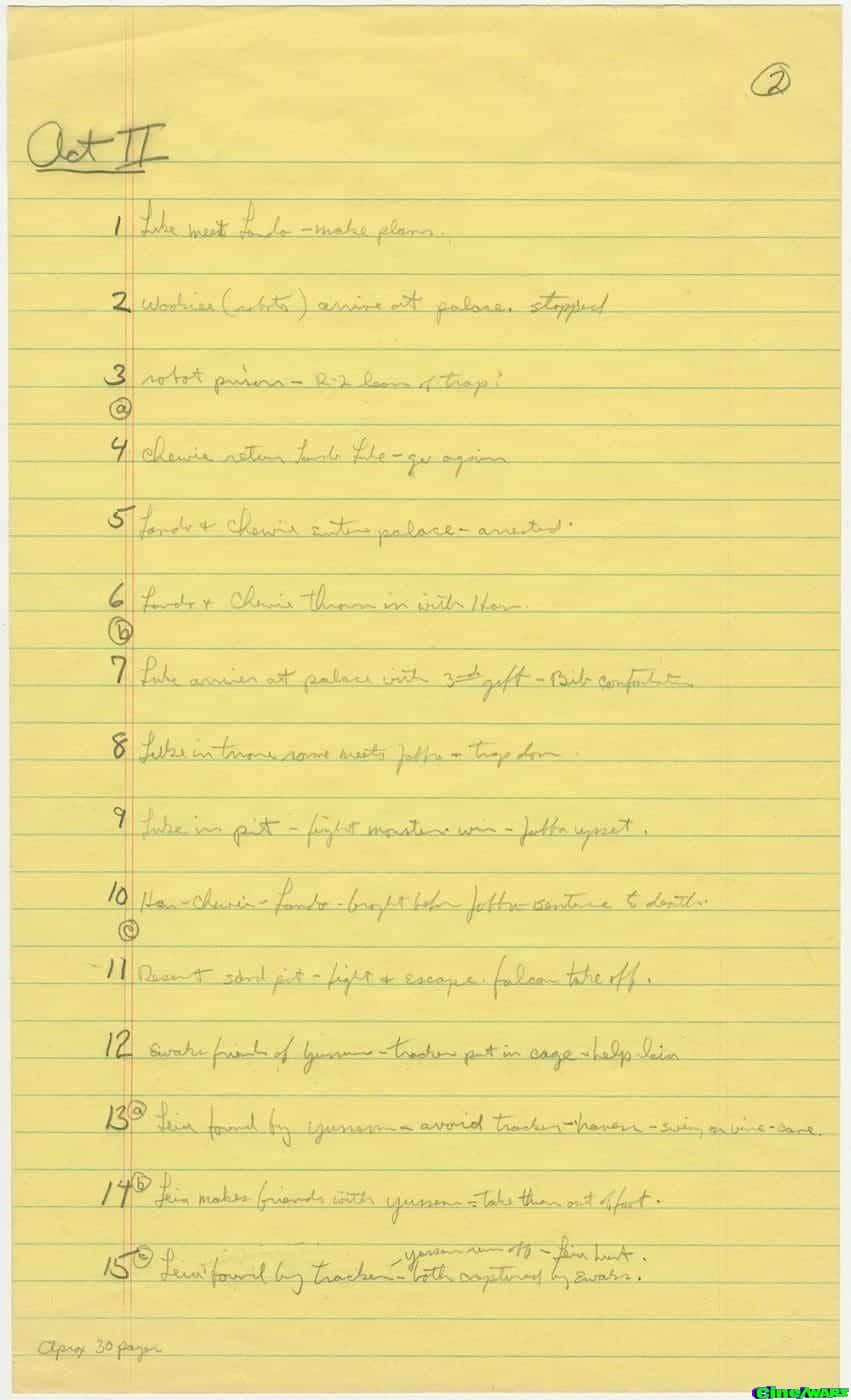 ②
Act II
1 Luke meets Lando - make plans.
2 Wookiee (robots) arrive at palace. stopped
3 robot prison - R-2 learn of trap?
ⓐ
4 Chewie return Lando Luke - go again
5 Lando + Chewie enter palace - arrested.
6 Lando + Chewie thrown in with Han.
ⓑ
7 Luke arrives at palace with 3rd gift - Bib
8 Luke in trone room meets Jabba - trap door
9 Luke in pit - fight monster. win - Jabba upset.
10 Han - Chewie - Lando - broght before Jabba - sentence to death.
ⓒ
11 Desert sand pit - fight & escape. falcon take off.
12 Ewaks friends of Yussem - tracker put in cage - help Leia
13 ⓐ Leia found by Yussem - avoid tracker - - swing on vine - cave.
14 ⓑ Leia makes friends with Yussem - take thorn out of foot.
yussem run off - Leia hurt.
15 ⓒ Leia found by tracker - both captured by Ewaks.
Aprox 30 pages
Cine/WARS